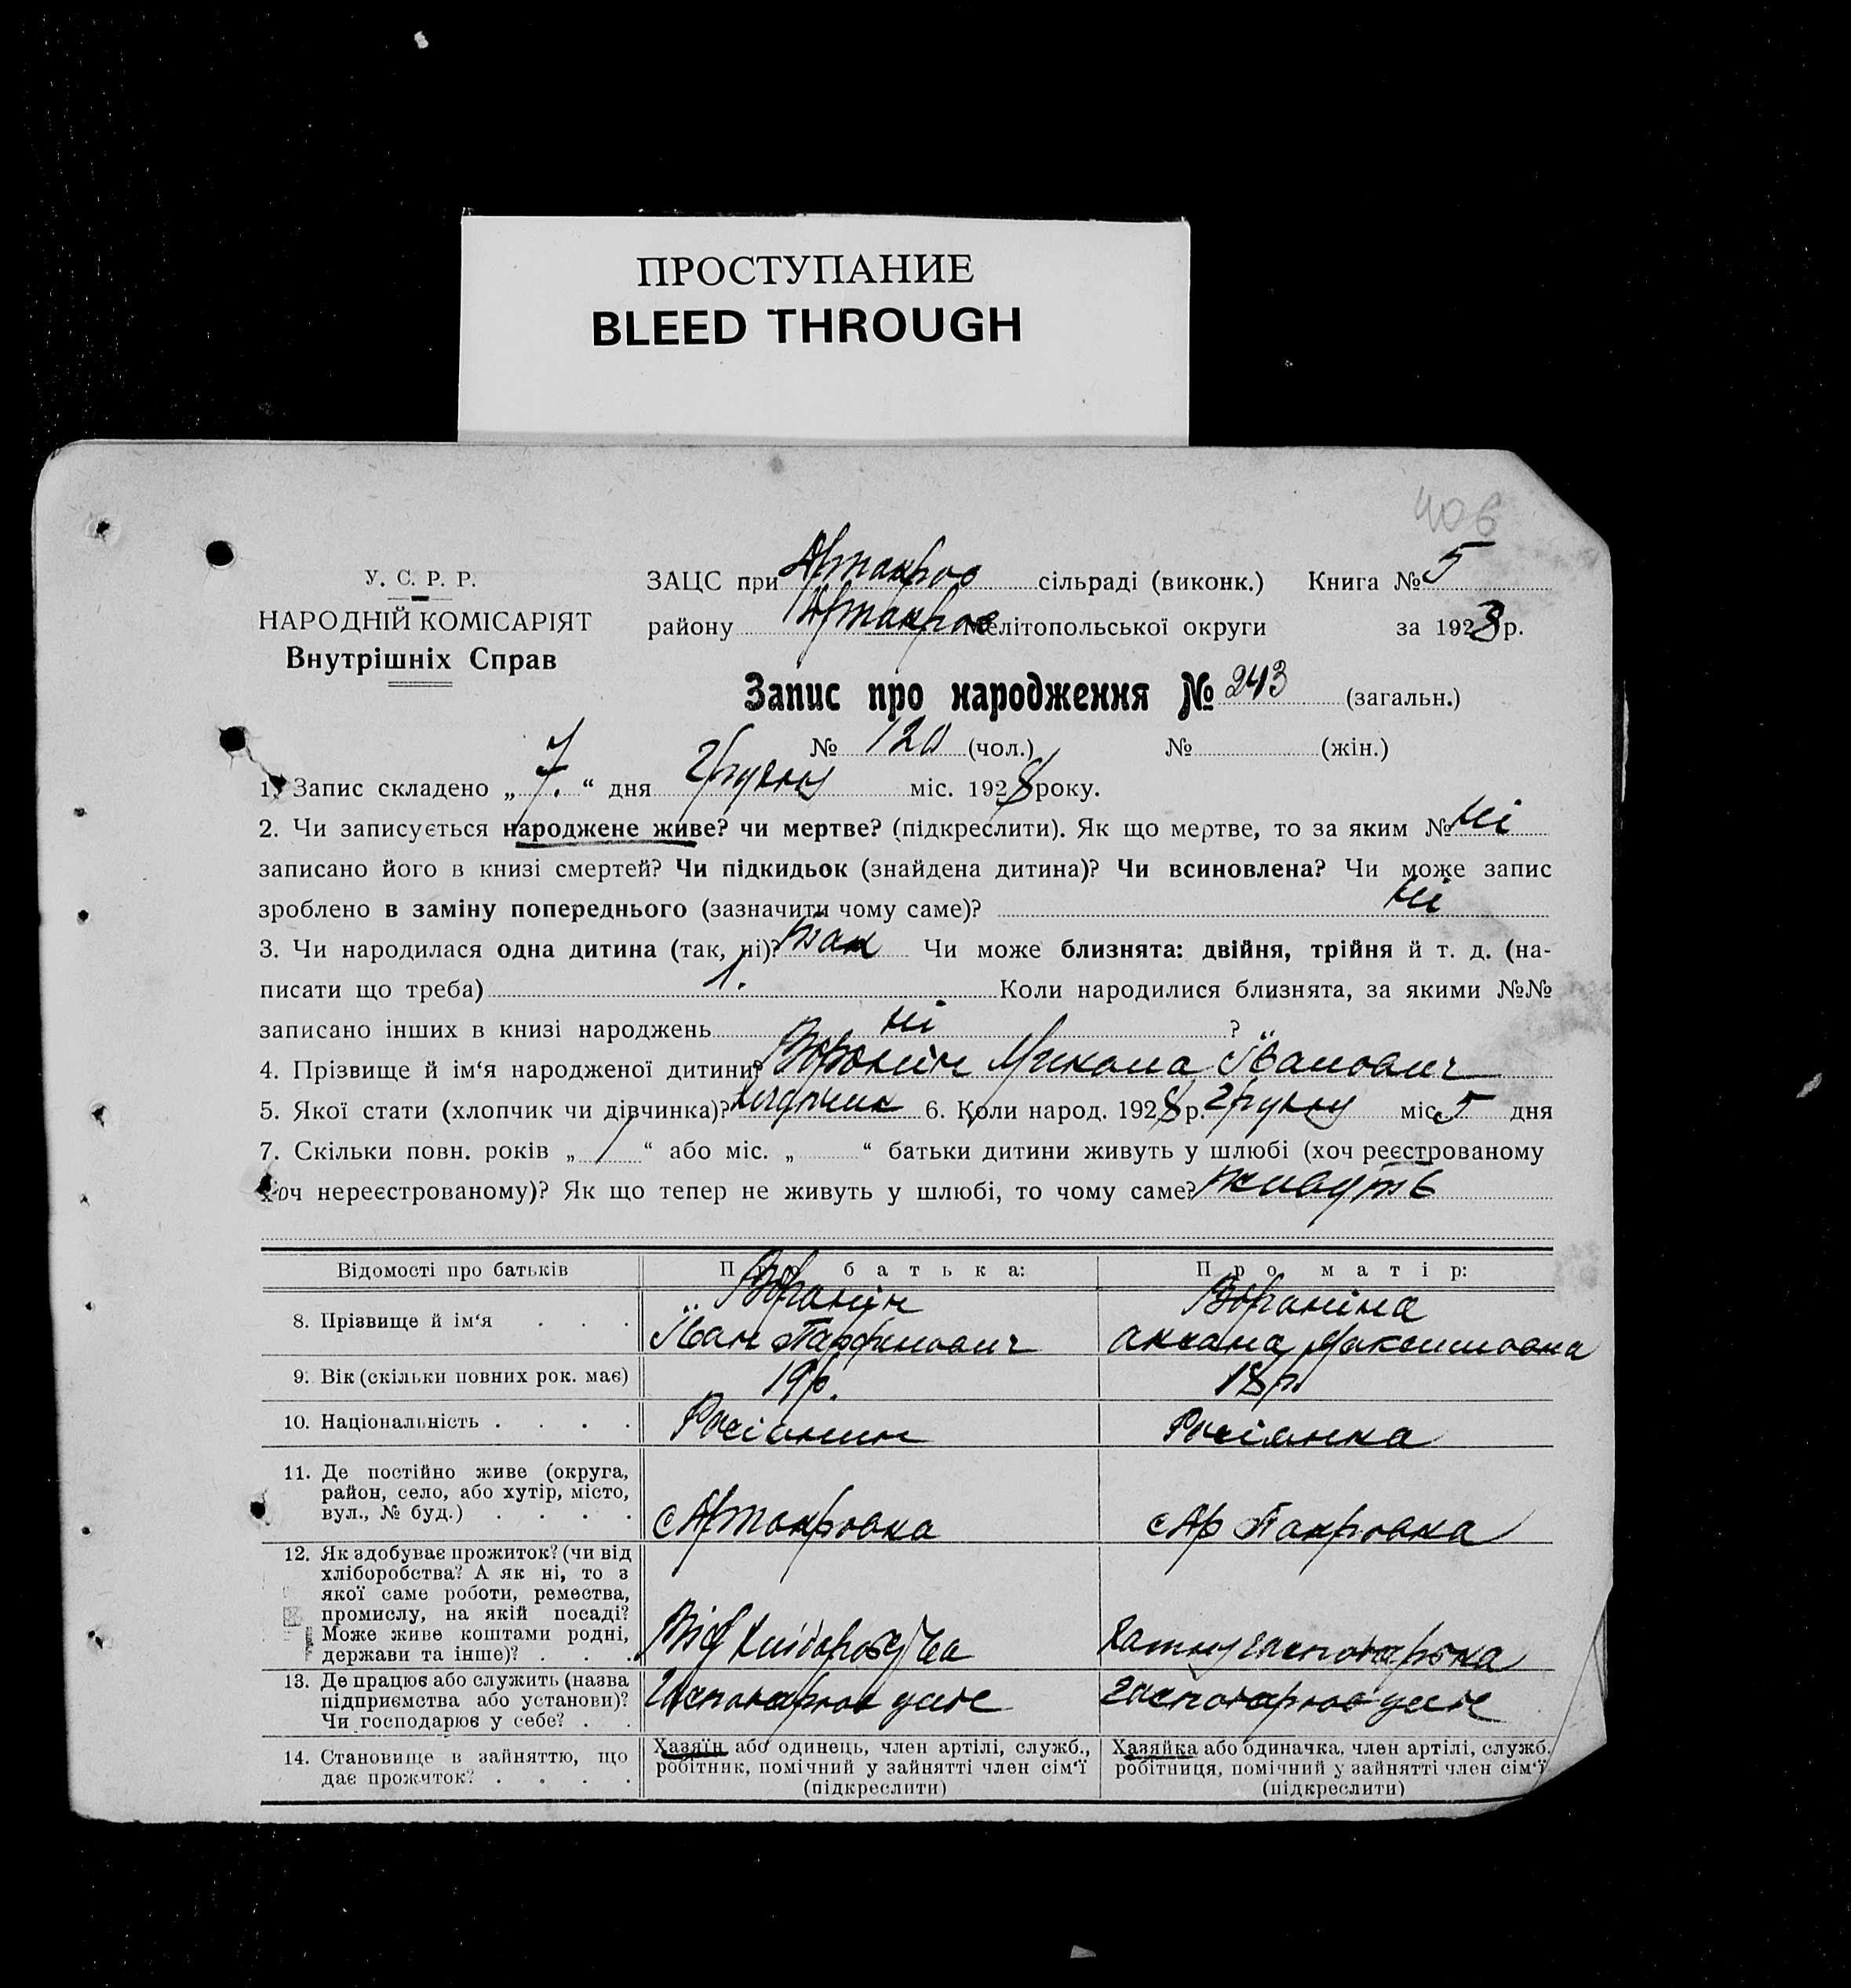 ПРОСТУПАНИЕ
BLEED THROUGH
406
У. С. Р. Р.
НАРОДНІЙ КОМІСАРІЯТ
Внутрішніх Справ
ЗАЦС при Артакров сільраді (виконк.) Книга № 5
району Артакров Мелітопольської округи за 1928 р.
Запис про народження № 243 (загальн.)
№ 120 (чол.) № (жін.)
1. Запис складено „ 7. “ дня Грудню міс. 1928 року.
2. Чи записується народжене живе? чи мертве? (підкреслити). Як що мертве, то за яким № ні
записано його в книзі смертей? Чи підкидьок (знайдена дитина)? Чи всиновлена? Чи може запис
зроблено в заміну попереднього (зазначити чому саме)? ні
3. Чи народилася одна дитина (так, ні)? так Чи може близнята: двійня, трійня й т. д. (на-
писати що треба) 1. Коли народилися близнята, за якими №№
записано інших в книзі народжень ні ?
4. Прізвище й ім‘я народженої дитини? Воронін Микола Іванович
5. Якої стати (хлопчик чи дівчинка)? хлопчик 6. Коли народ. 1928 р. Грудню міс. 5 дня
7. Скільки повн. років „ 1 “ або міс. „ “ батьки дитини живуть у шлюбі (хоч реєстрованому
хоч нереєстрованому)? Як що тепер не живуть у шлюбі, то чому саме? живуть
Відомості про батьків
Про батька:
Про матір:
8. Прізвище й ім‘я . . .
Воронін
Іван Парфинович
Вороніна
Аксана Максимовна
9. Вік (скільки повних рок. має)
19 р.
18 р.
10. Національність . . . .
Росіянин
Росіянка
11. Де постійно живе (округа,
район, село, або хутір, місто,
вул., № буд.) . . . .
с Артакровка
с Ар Пакровка
12. Як здобуває прожиток? (чи від
хліборобства? А як ні, то з
якої саме роботи, ремества,
промислу, на якій посаді?
Може живе коштами родні,
держави та інше)? . . .
Від
господарка
13. Де працює або служить (назва
підприємства або установи)?
Чи господарює у себе? . .
Господарює
господарює
14. Становище в зайняттю, що
дає прожиток? . . . .
Хазяїн або одинець, член артілі, служб.,
робітник, помічний у зайнятті член сім‘ї
(підкреслити)
Хазяйка або одиначка, член артілі, служб.
робітниця, помічний у зайнятті член сім‘ї
(підкреслити)